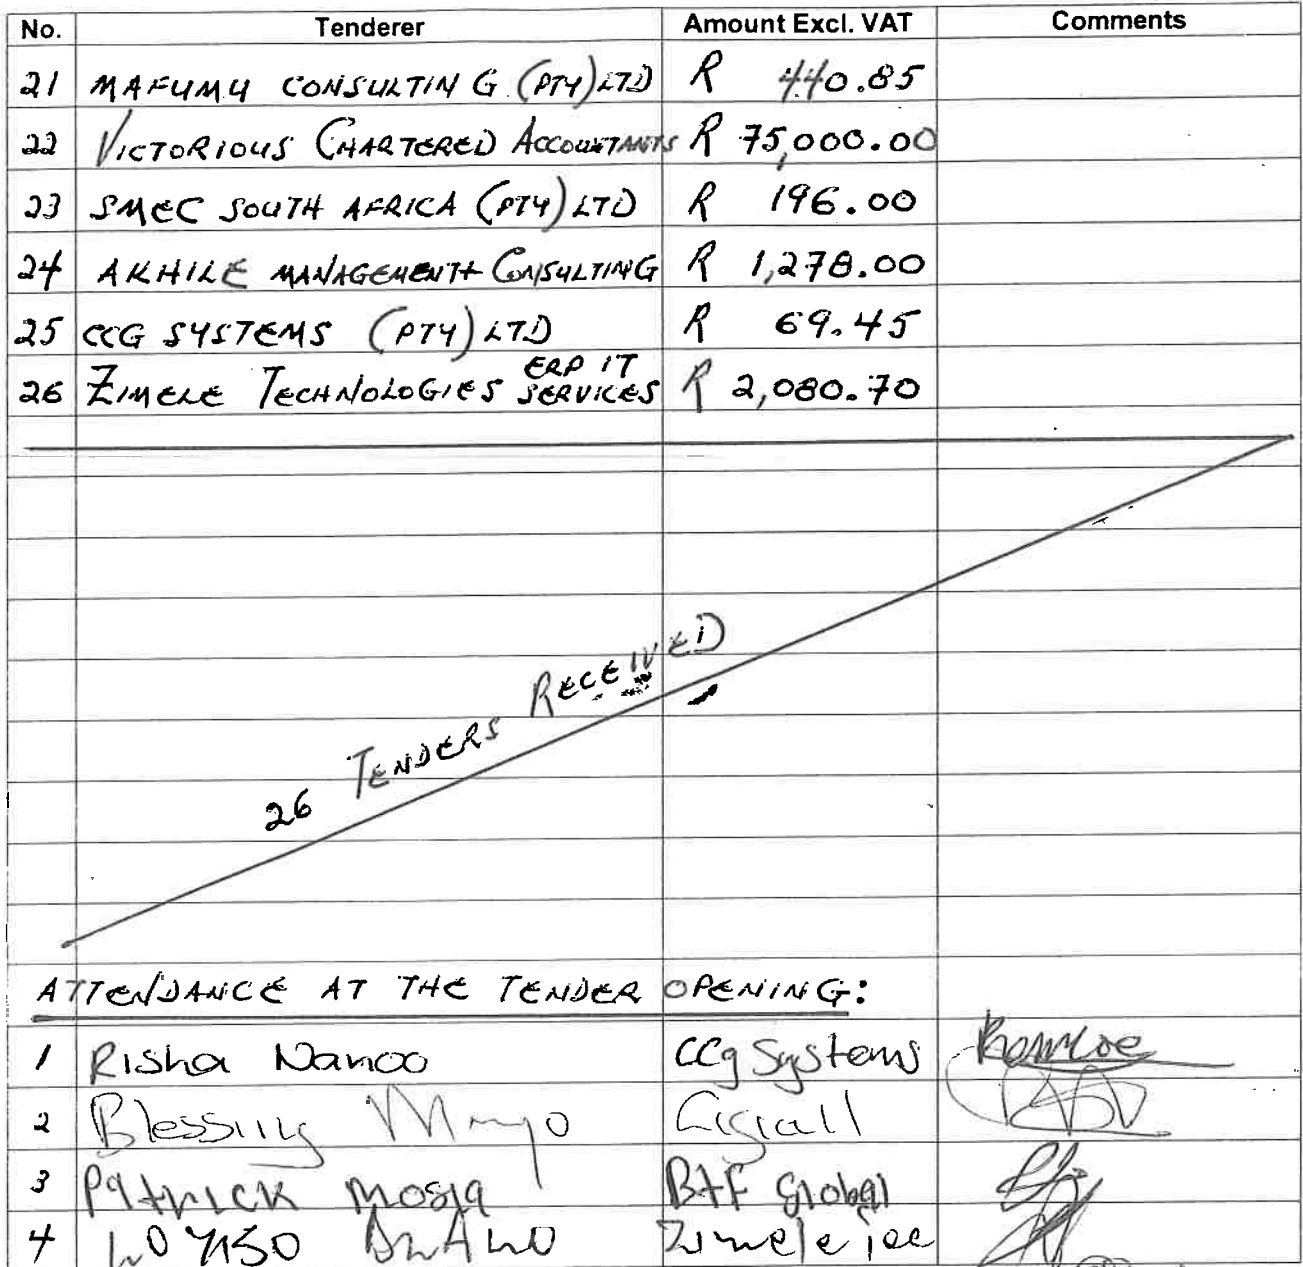 No. Tenderer Amount Excl. VAT Comments
21 MAFUMU CONSULTING (PTY) LTD R 440.85
22 VICTORIOUS CHARTERED ACCOUNTANTS R 75,000.00
23 SMEC SOUTH AFRICA (PTY) LTD R 196.00
24 AKHILE MANAGEMENT+ CONSULTING R 1,278.00
25 CCG SYSTEMS (PTY) LTD R 69.45
26 ZIMELE TECHNOLOGIES ERP IT SERVICES R 2,080.70
26 TENDERS RECEIVED
ATTENDANCE AT THE TENDER OPENING:
1 Risha Nanoo CCg Systems
2 Blessing
3 Patrick Mosia B+F Global
4